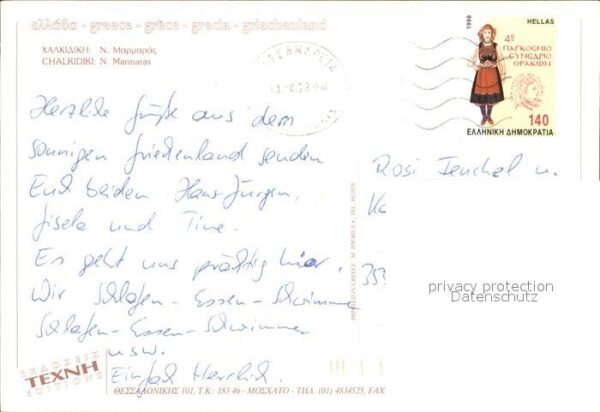 ελλάδα - greece - grèce - grecia - griechenland
ΧΑΛΚΙΔΙΚΗ: Ν. Μαρμαράς
CHALKIDIKI: N. Marmaras
1998
HELLAS
4º
ΠΑΓΚΟΣΜΙΟ
ΣΥΝΕΔΡΙΟ
ΘΡΑΚΩΝ
140
ΕΛΛΗΝΙΚΗ ΔΗΜΟΚΡΑΤΙΑ
Herzliche Grüße aus dem
sonnigen Griechenland senden
Euch beiden Hans-Jürgen,
Gisela und Tine.
Es geht uns prächtig hier.
Wir Schlafen - Essen - Schwimmen
Schlafen - Essen - Schwimmen
usw.
Einfach Herrlich.
Rosi u.
353
privacy protection
Datenschutz
PRINTED IN GREECE
ΕΚΔΟΣΕΙΣ
ΤΕΧΝΗ
EDITIONS
ΘΕΣΣΑΛΟΝΙΚΗΣ 101, Τ.Κ. 183 46 - ΜΟΣΧΑΤΟ - ΤΗΛ. (01) 4834525, FAX